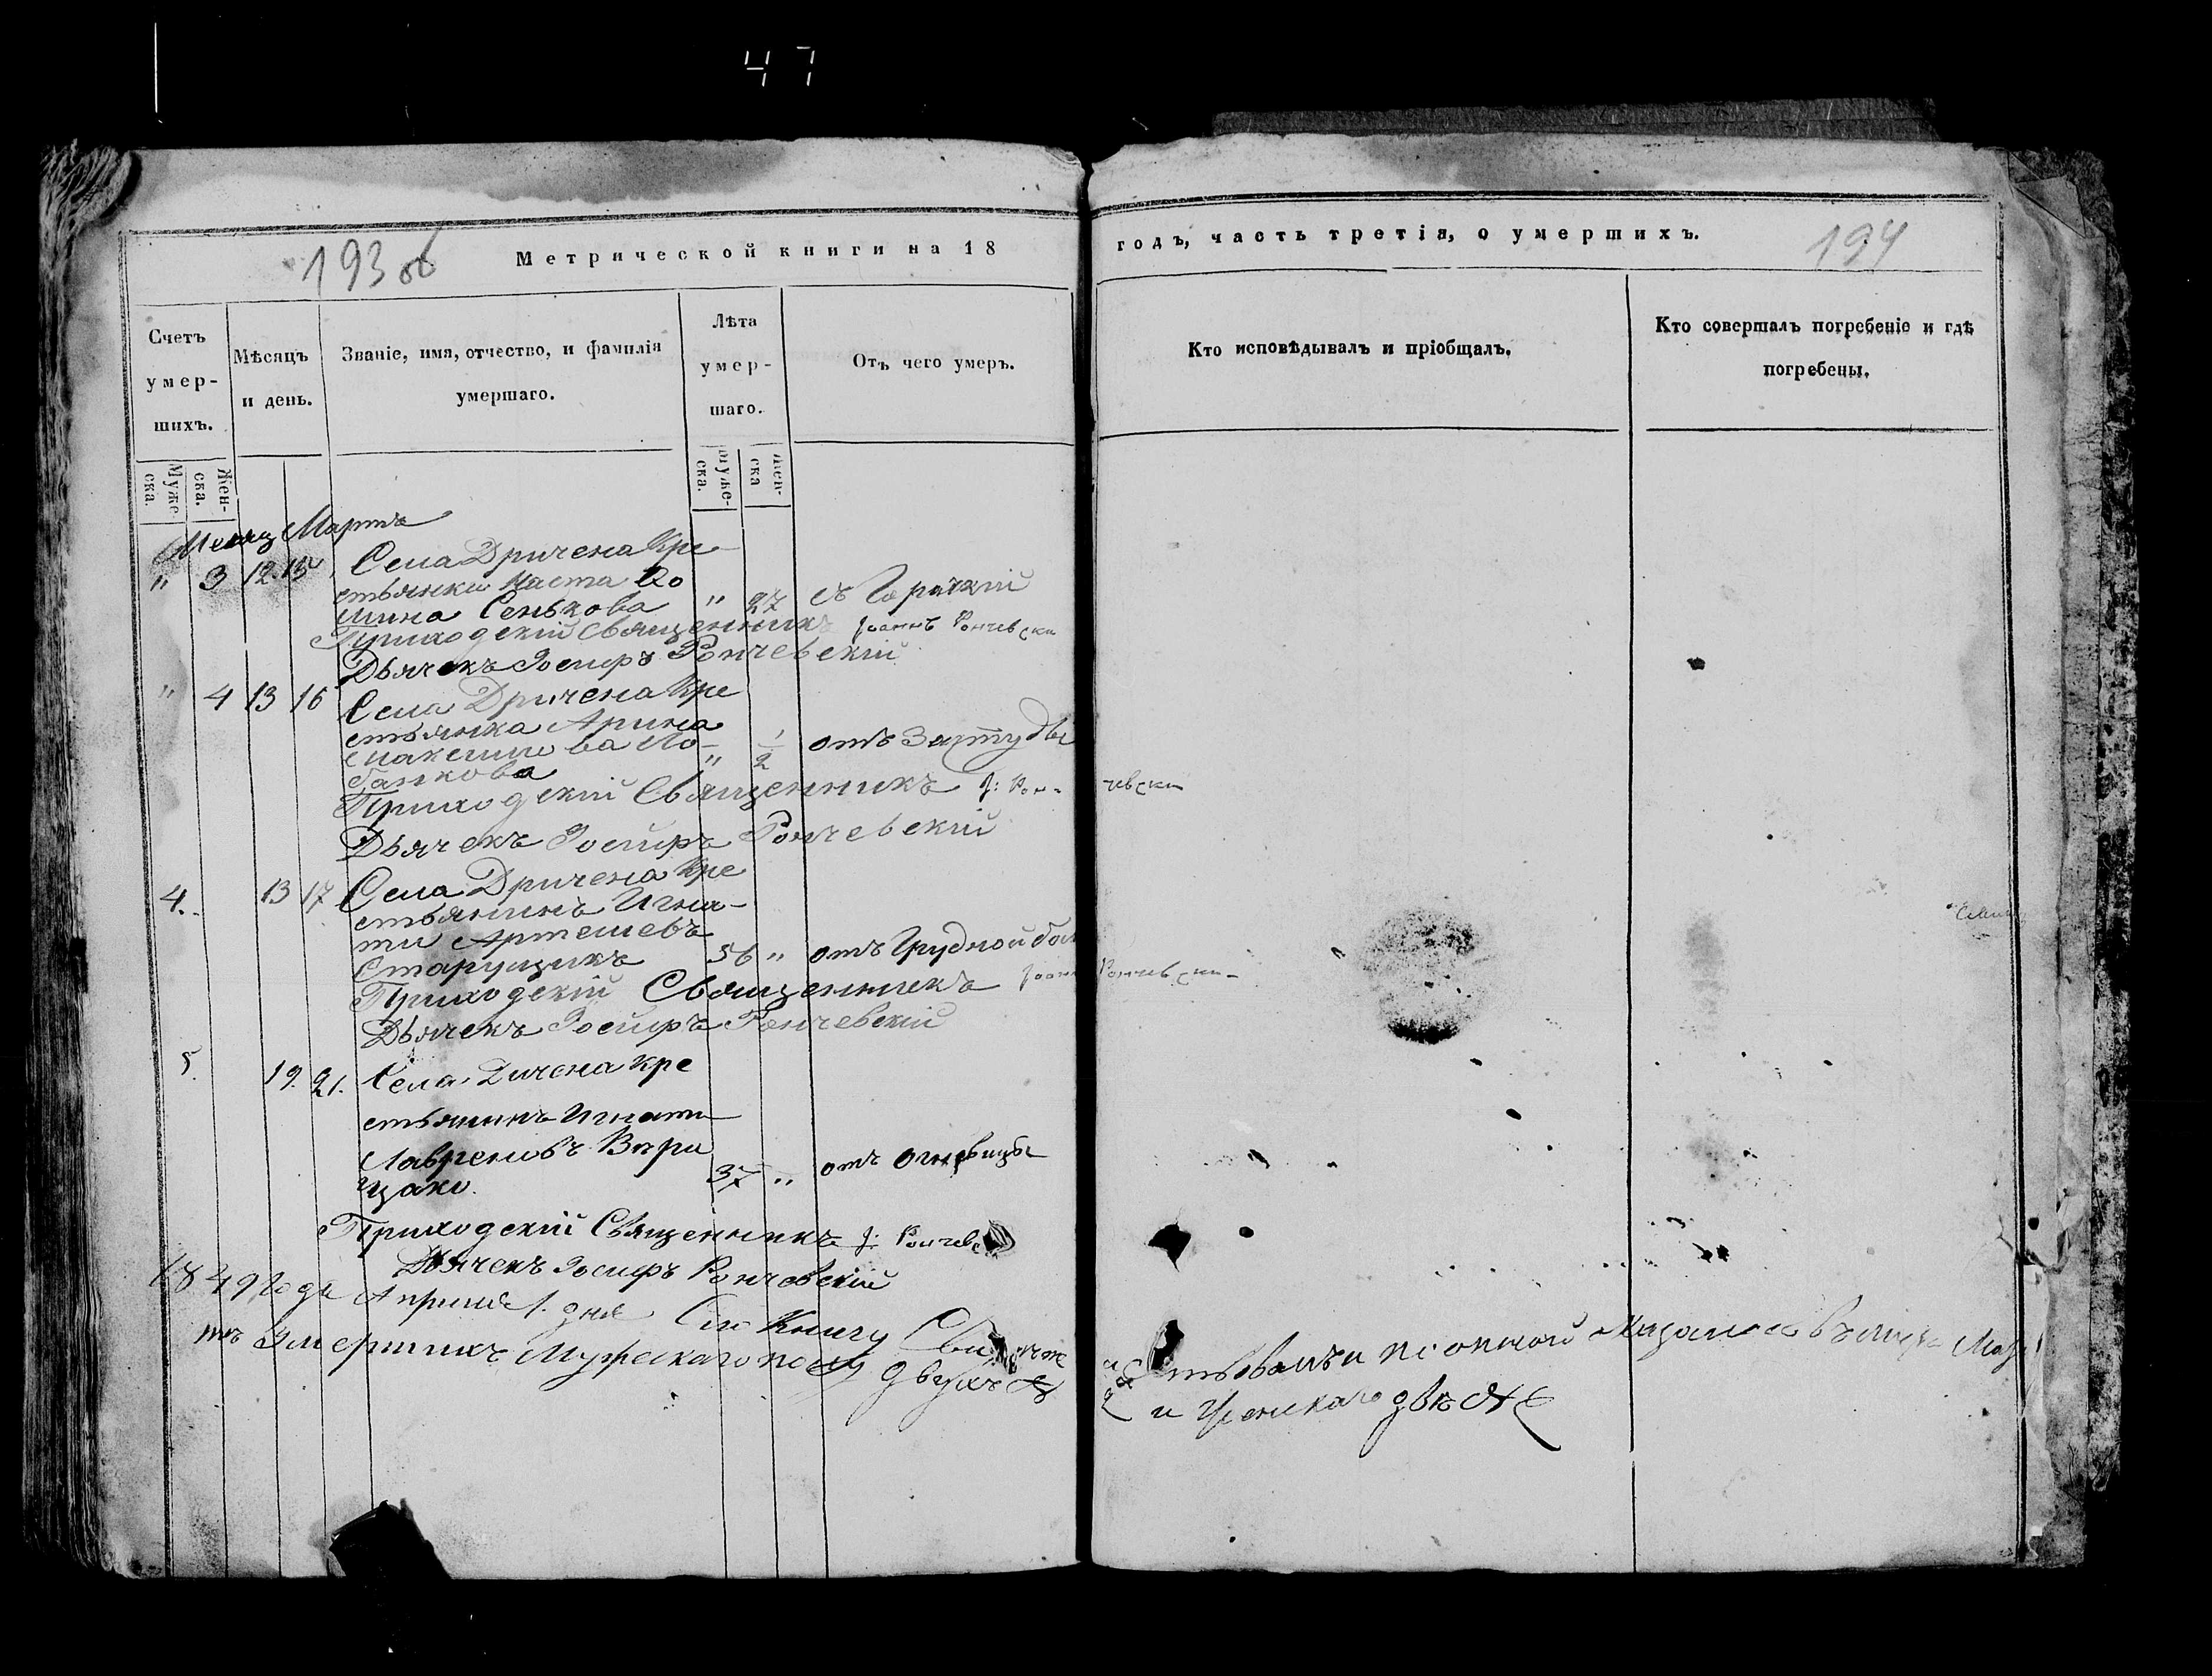 47
193 об
Метрической книги на 18
годъ, часть третія, о умершихъ.
194
Счетъ умер-шихъ.
Мѣсяцъ и день.
Званіе, имя, отчество, и фамилія умершаго.
Лѣта умер-шаго.
Отъ чего умеръ.
Кто исповѣдывалъ и пріобщалъ.
Кто совершалъ погребеніе и гдѣ погребены.
Муже-ска.
Жен-ска.
Муже-ска.
Жен-ска
Месяц Мартъ
" 3 12. 15 Села Дричена Кре
стьянка Наста
Сенькова " 27 съ Горячкій
Приходскій Священникъ Іоаннъ Рончевски
Дьячекъ Іосифъ Рончевскій
" 4 13 16 Села Дричена Кре
стьянка Арина
Максимова Ло- " 1/2 отъ
банкова
Приходскій Священникъ І: Рончевски
Дьячекъ Іосифъ Рончевскій
4. 13 17 Села Дричена Кре
стьянинъ Игна-
ти Артемевъ
Старущикъ 56 " отъ Грудной бол
Приходскій Священникъ Іоаннъ Рончевски
Дьячекъ Іосифъ Рончевскій
5. 19. 21. Села Дичена Кре
стьянинъ Игнати
Лавреновъ
37 " отъ Огневицы
Приходскій Священникъ І: Рончевс
Дьячекъ Іосифъ Рончевскій
1849 Года Апреля 1. дня Сію Книгу
умершихъ Мужескаго полу двухъ
и Женскаго двѣ